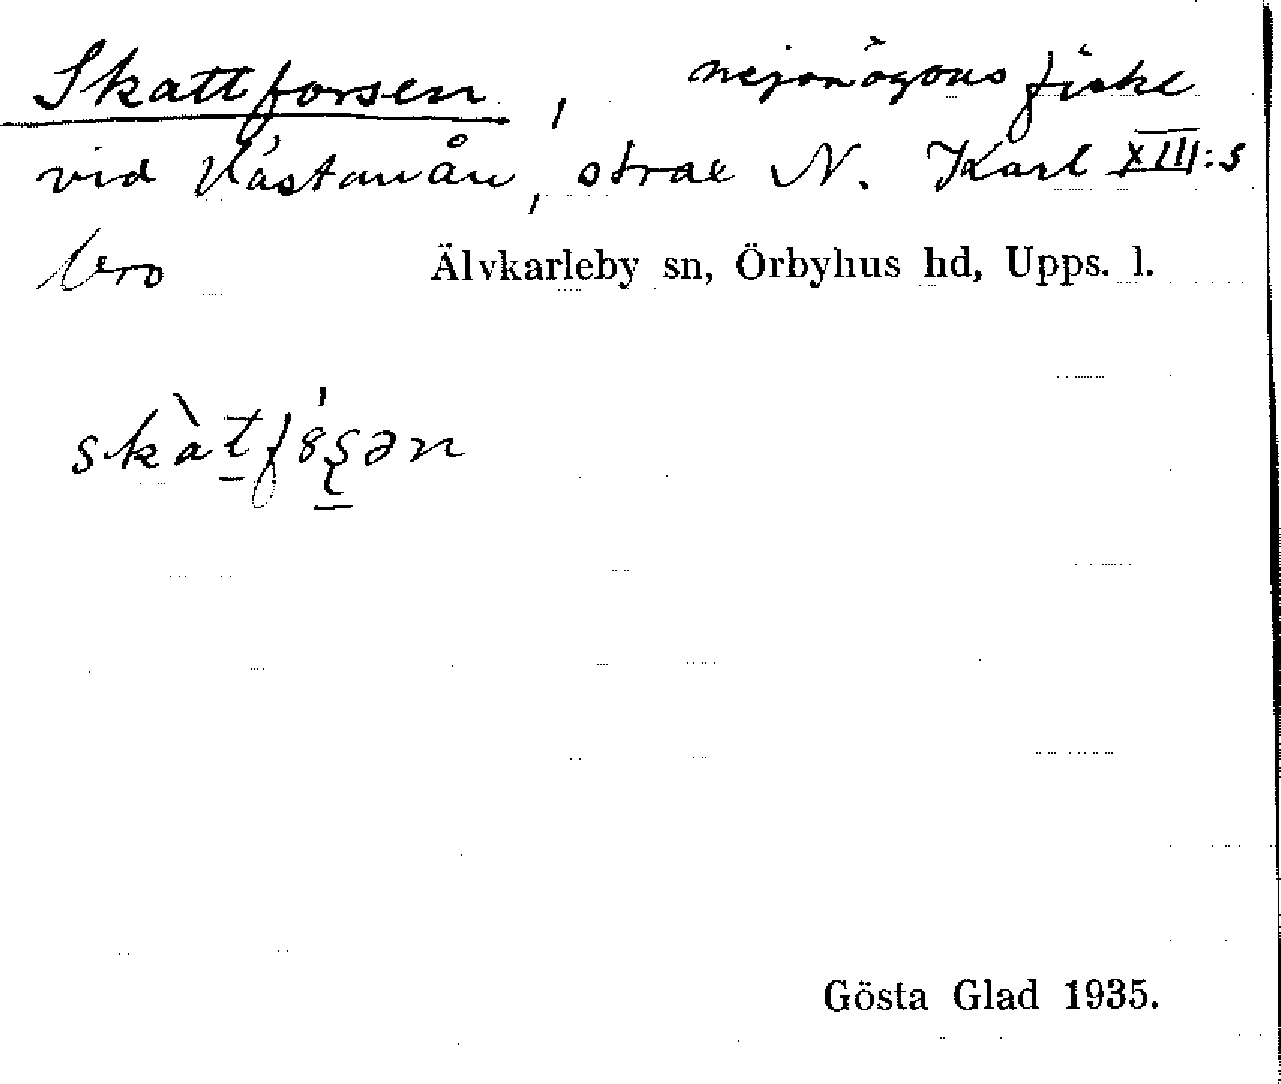 Skattforsen, nejonögonsfiske
vid Västanån, strax N. Karl XIII:s
bro Älvkarleby sn, Örbyhus hd, Upps. l.
Gösta Glad 1935.